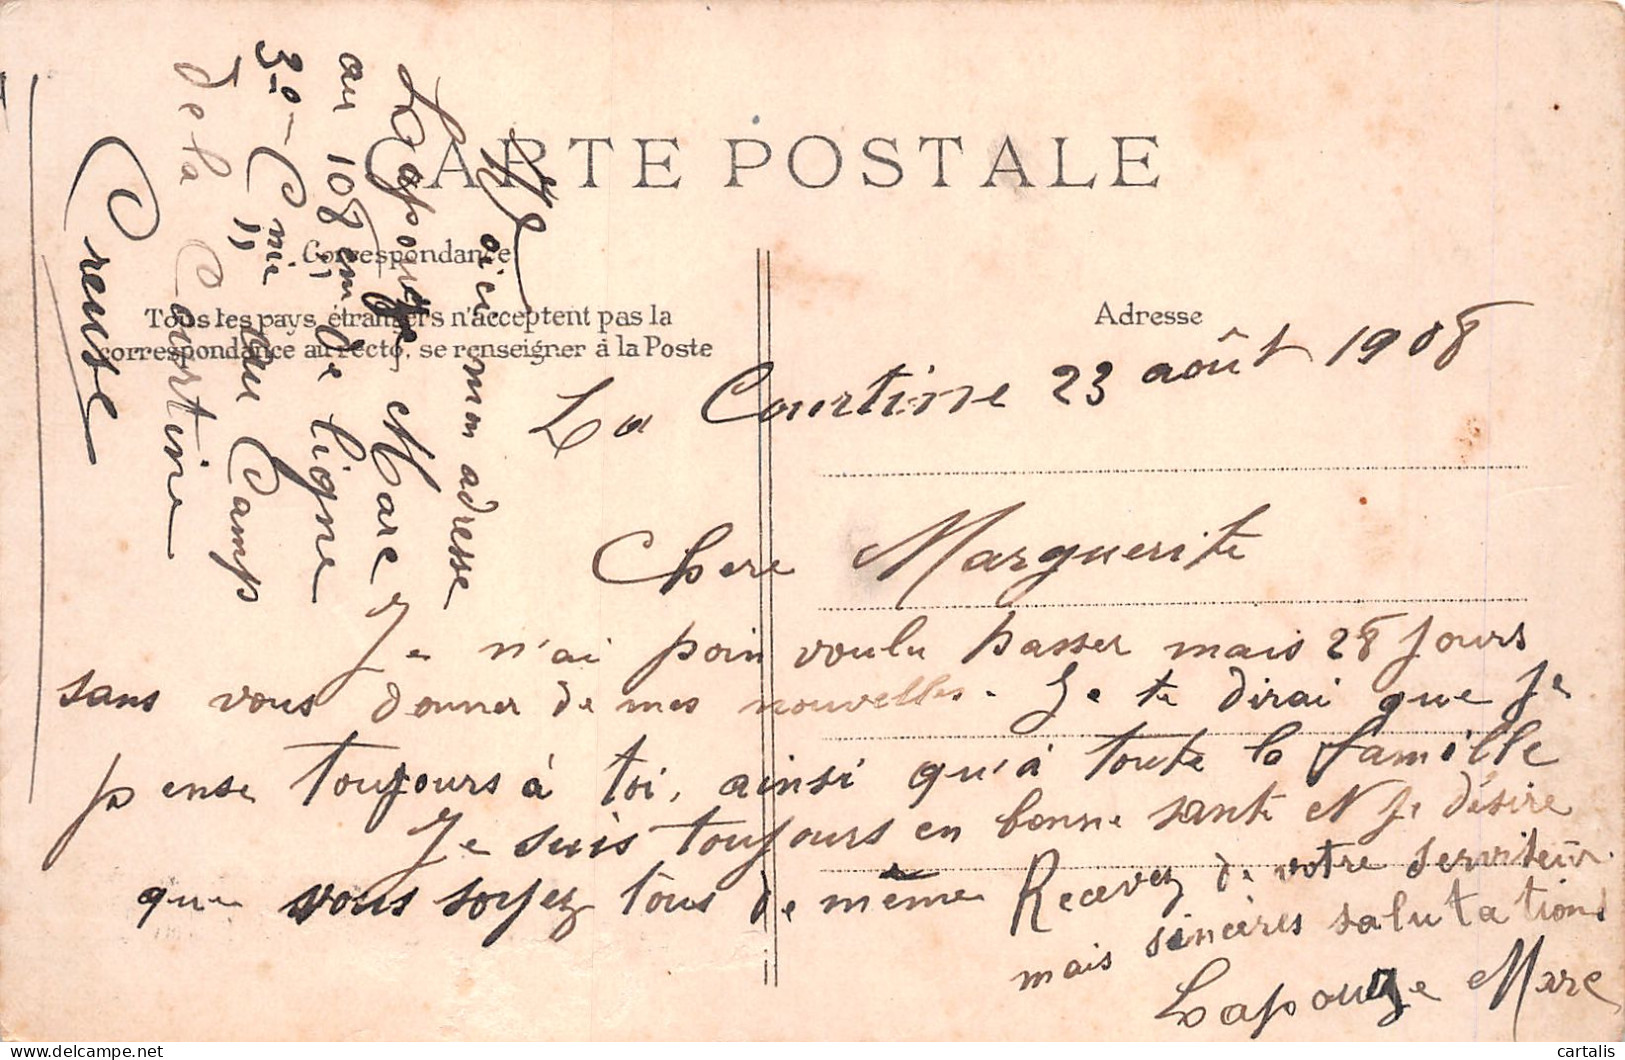 CARTE POSTALE
Correspondance
Tous les pays étrangers n'acceptent pas la
correspondance au recto, se renseigner à la Poste
Adresse
La Courtine 23 août 1908
Chere Marguerite
Je n'ai poin voulu passer mais 28 jours
sans vous donner de mes nouvelles. Je te dirai que je
pense toujours à toi, ainsi qu'à toute la famille
Je suis toujours en bonne santé et je désire
que vous soyez tous de même Recevez de votre serviteur
mais sincères salutations
Lapouze Marc
Voici mon adresse
Mr
Lapouze Marc
au 108 em de ligne
3e Cnie au Camp
de la Courtine
Creuse
cartalis